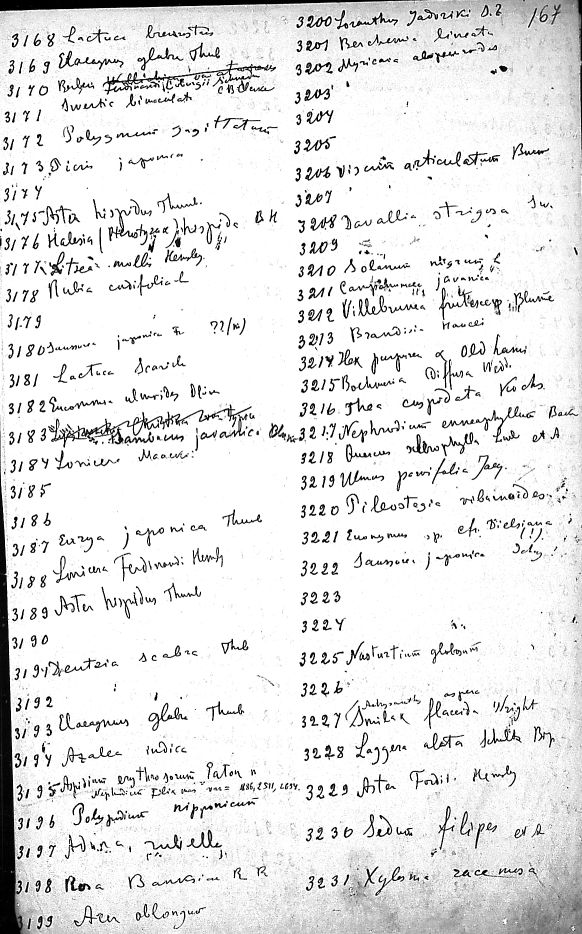 167
3168 Lactuca
3169 Elaeagnus glabra Thunb
3170 Berberis
3171 Swertia bimaculata C B Clarke
3172 Polygonum sagittatum
3173 Pieris japonica
3174
3175 Aster hispidus Thunb.
3176 Halesia (Pterostyrax) hispida B H
3177 Litsea mollis Hemsley
3178 Rubia cordifolia L
3179
3180 Saussurea japonica ??
3181 Lactuca
3182 Eucommia ulmoides Oliv
3183 Damnacus javanica
3184 Lonicera Maackii
3185
3186
3187 Eurya japonica Thunb
3188 Lonicera Ferdinandi Hemsly
3189 Aster hispidus Thunb
3190
3191 Deutzia scabra Thub
3192
3193 Elaeagnus glabra Thunb
3194 Azalea indica
3195 Aspidium erythrosorum Eaton
Nephrodium
3196 Polypodium nipponicum
3197 Adina rubella
3198 Rosa Banksiae R R
3199 Acer oblongum
3200 Loranthus Yadoriki
3201 Berchemia lineata
3202 Myricaria alopecuroides
3203
3204
3205
3206 Viscum articulatum Burm
3207
3208 Davallia strigosa Sw.
3209
3210 Solanum nigrum L
3211 Campanumea javanica
3212 Villebrunea frutescens Blume
3213 Brandisia Hancei
3214 Ilex purpurea α Oldhami
3215 Boehmeria diffusa Wedd.
3216 Thea cuspidata Kochs
3217 Nephrodium enneaphyllum Baker
3218 Quercus
3219 Ulmus parvifolia Jacq.
3220 Pileostegia viburnoides
3221 Euonymus sp. cfr. Dielsiana
3222 Saussurea japonica
3223
3224
3225 Nasturtium globosum
3226
aspera
3227 Smilax flaccida Wright
3228 Laggera alata Schultz Bip
3229 Aster Fordii Hemsly
3230 Sedum filipes et A
3231 Xylosma racemosa